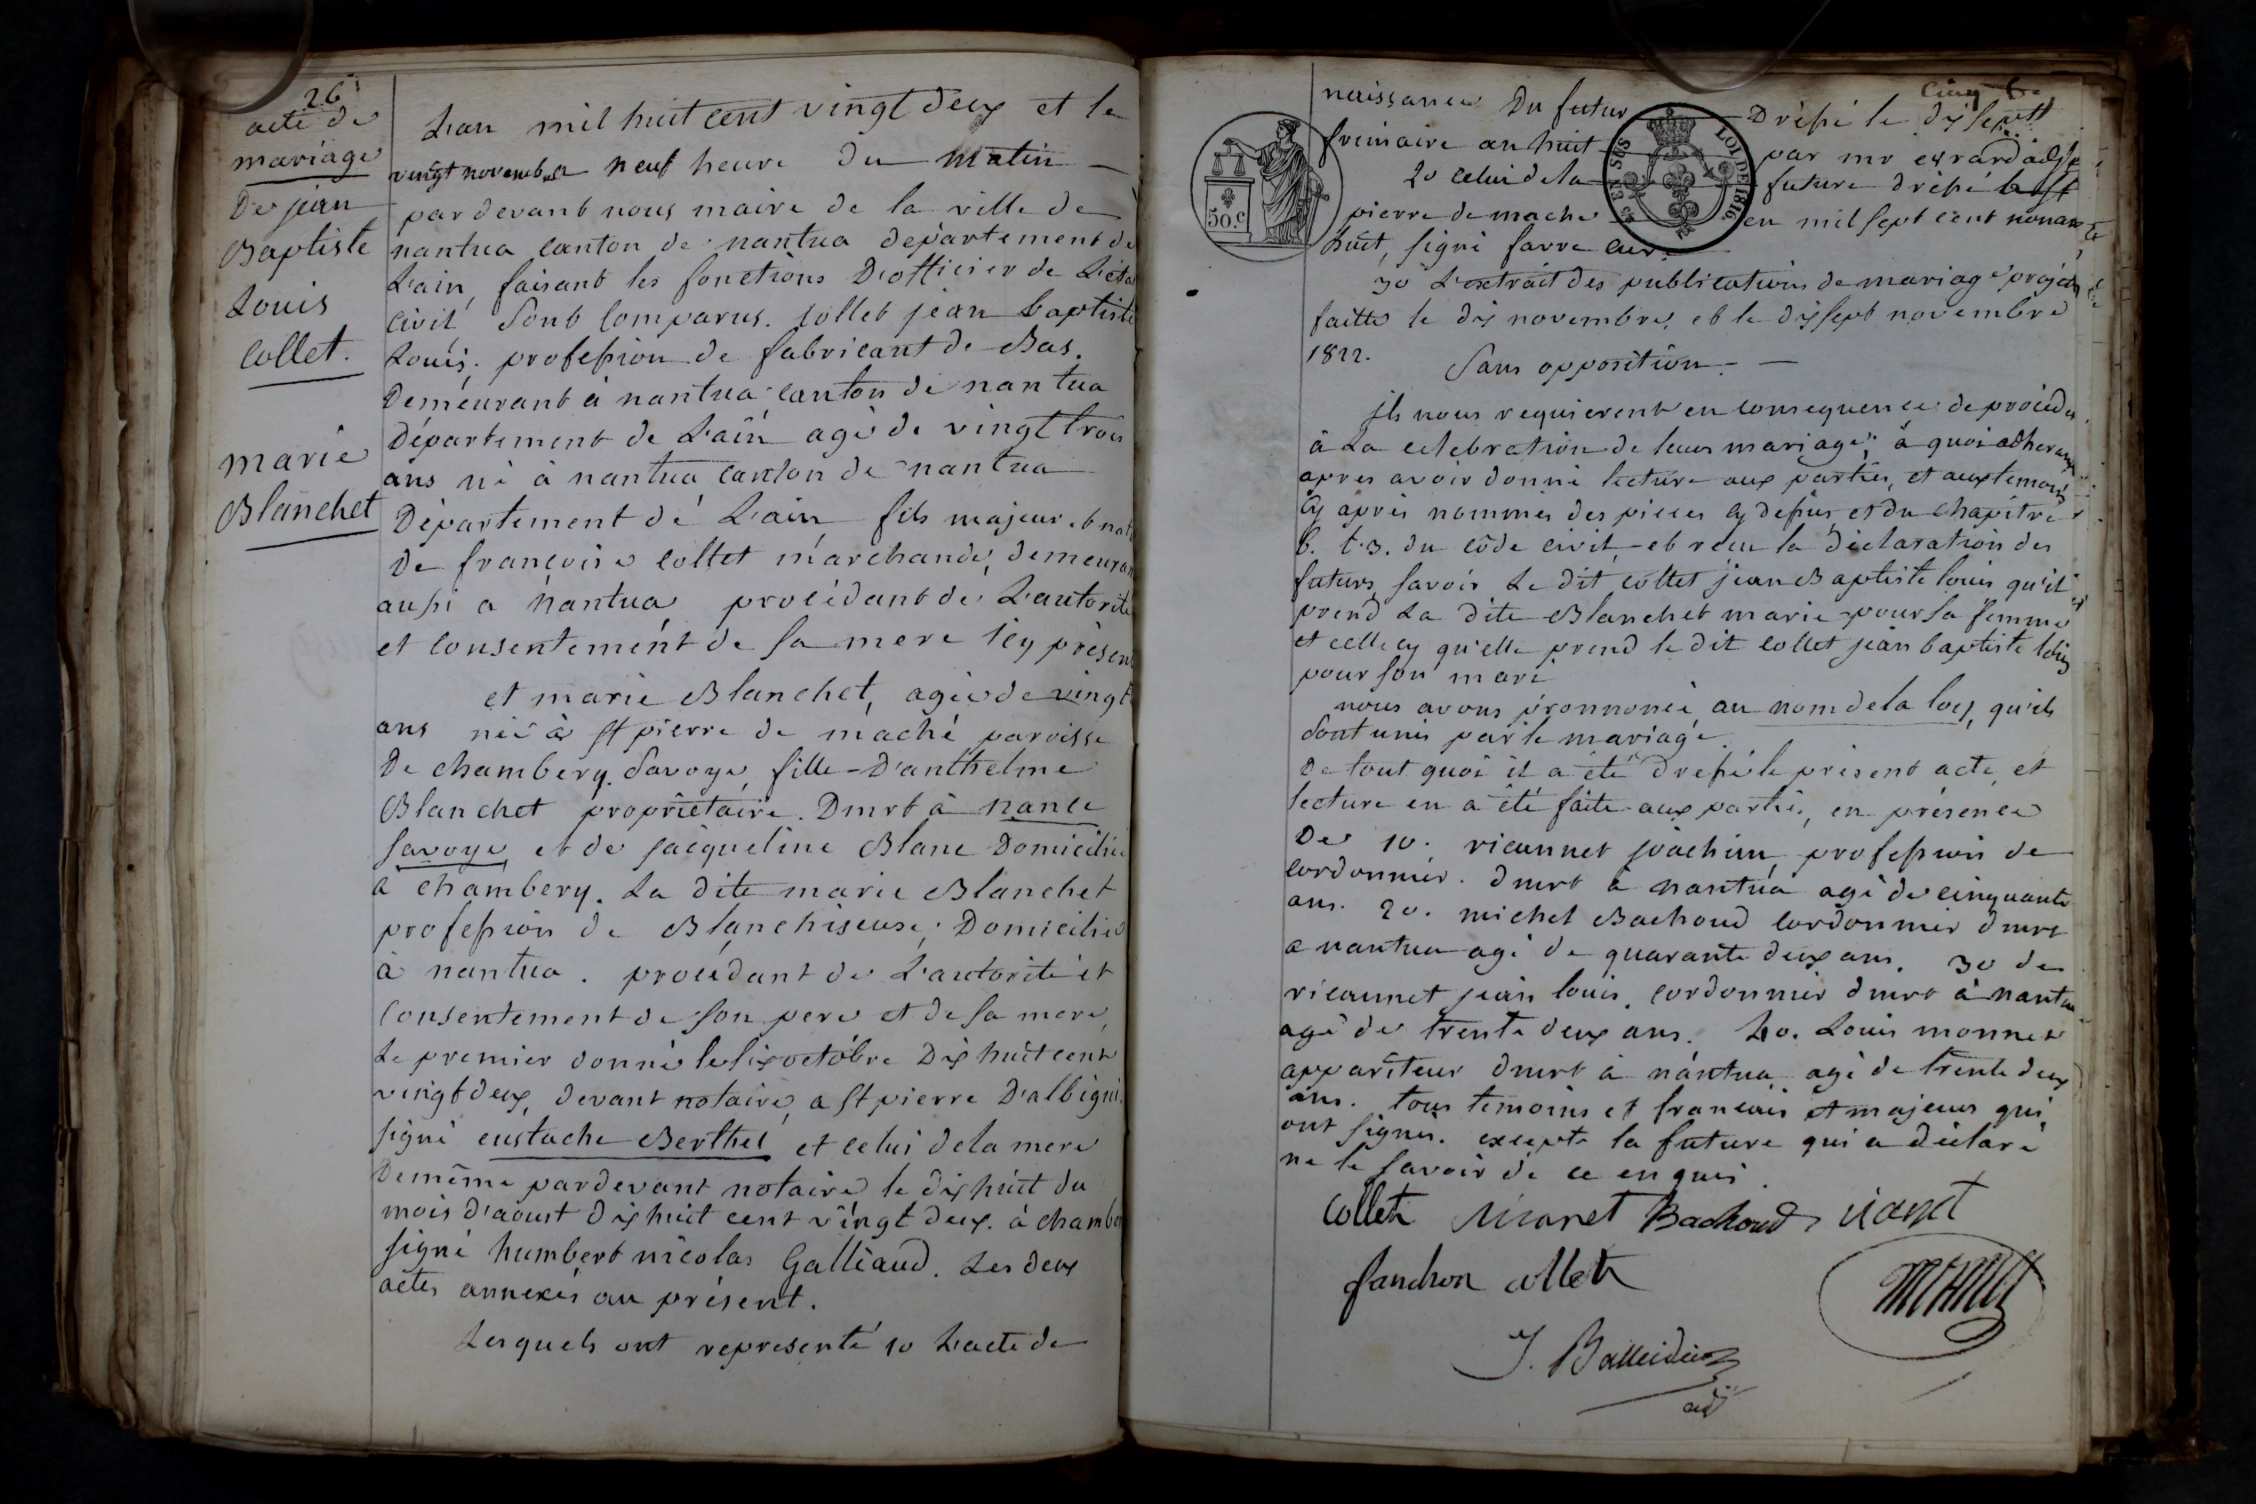 26
acte de
mariage
De jean
Baptiste
Louis
Collet.
marie
Blanchet
Lan mil huit cent vingt deux et le
vingt novembre neuf heure du matin
par devant nous maire de la ville de
nantua canton de nantua département de
L'ain, faisant les fonctions D'officier de L'état
civil, Sont Comparus. Collet jean baptiste
Louis. profession de fabricant de Bas.
Demeurant à nantua canton de nantua
Département de L'ain agé de vingt trois
ans né à nantua canton de nantua
Département de L'ain fils majeur et nat
de françoise Collet marchande, demeuran
aussi a nantua procédant de L'autorité
et Consentement de sa mere icy présen
et marie Blanchet, agée de vingt
ans née à St pierre de maché paroisse
De chambery Savoye, fille D'anthelme
Blanchet propriétaire. Dmrt à nance
Savoye et de jacqueline Blanc Domiciliée
a chambery. La dite marie Blanchet
profession de Blanchiseuse, Domiciliée
à nantua. procédant de L'autorité et
Consentement de son pere et de sa mere,
Le premier donné le six octobre Dix huit cent
vingt deux, devant notaire, a St pierre D'albigni
signé eustache Berthet et celui dela mere
Demême pardevant notaire le dix huit du
mois d'aoust dix huit cent vingt deux. à chambe
signé humbert nicolas Galliaud. Les deux
actes annexés au présent.
Lesquels ont representé 1o L'acte de
50.c
LOI DE 1816
naissance Du futur Dréssé le dix sept
frimaire an huit par mr
2o celui de la future dréssé
pierre de mache en mil sept cent nonan
huit, signé favre curé.
3o L'extrait des publications de mariage
faitte le dix novembre, et le dix sept novembre
1822. Sans opposition.
ils nous requierent en consequence de procéder
à La celebration de leur mariage, à quoi adherant
apres avoir donné lecture aux parties, et aux temoins
Cy après nommés des pieces cy dessus, et du chapitre
6. t.3. du côde civil et reçu la déclaration des
futurs, savoir Le dit collet jean Baptiste louis qu'il
prend La dite Blanchet marie pour sa femme
et celle cy qu'elle prend le dit collet jean baptiste louis
pour son mari
nous avons prononcé, au nom de la loy, qu'ils
sont unis par le mariage.
De tout quoi il a été dressé le présent acte, et
lecture en a été faite aux parties, en présence
De 1o. ricannet joachim, profession de
cordonnier. dmrt à nantua agé de cinquante
ans. 2o. michel Bachoud cordonnier dmrt
a nantua agé de quarante deux ans. 3o de
ricannet jean louis, cordonnier dmrt à nantua
agé de trente deux ans. 4o. Louis monnet
appariteur dmrt à nantua agé de trente deux
ans. tous temoins et francais et majeurs qui
ont signés. excepté la future qui a déclaré
ne le savoir de ce enquis.
Collet Bachoud
fanchon collet